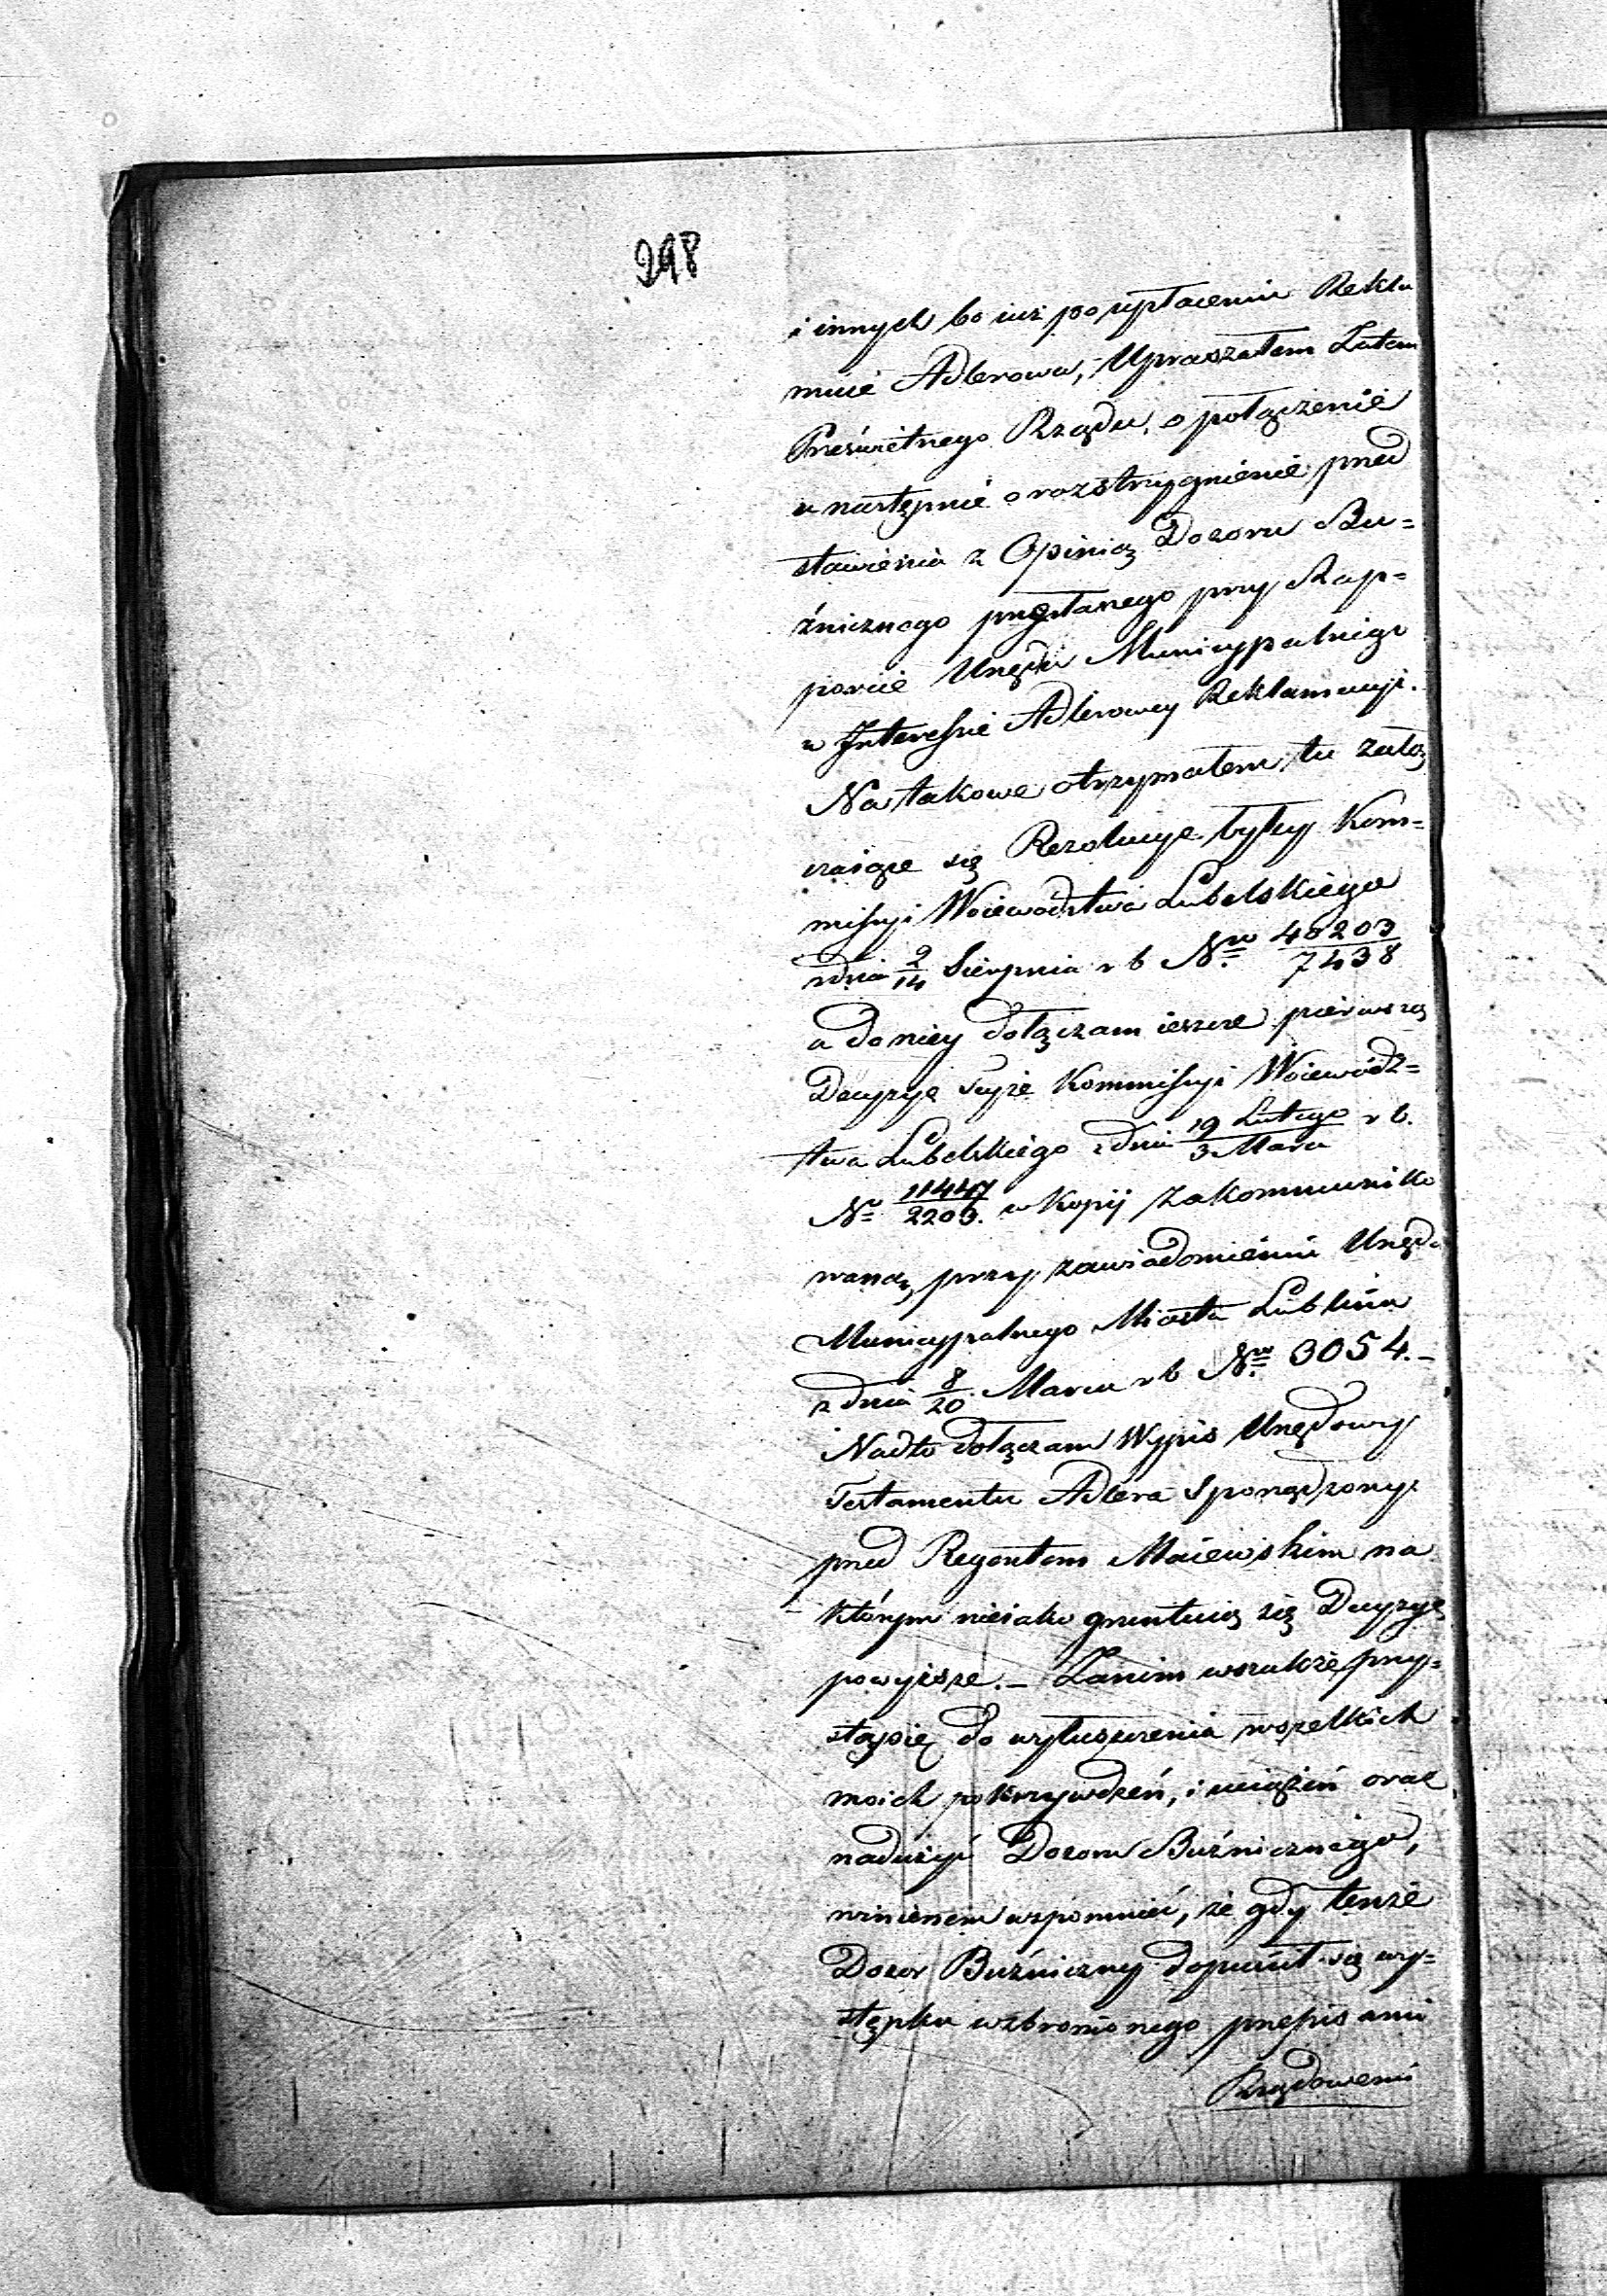 298
i innych bo iuż po upłaceniu Rekla
mnie Adlerowa, Upraszałem Zatem
Prześwietnego Rządu, o połączenie
a następnie o rozstrzygnienie przed
stawienia z Opinią Dozoru Bu=
źnicznego przesłanego przy Rap=
porcie Urzędu Municypalnego
w Interessie Adlerowey Reklamacyi.
Na takowe otrzymałem tu załą
czaiące się Rezolucye byłey Kom=
missyi Woiewodztwa Lubelskiego
zdnia 2/14 Sierpnia r b Nro 40203/7438
a do niey dołączam ieszcze pierwszą
Decyzyę teyże Kommissyi Woiewódz=
twa Lubelskiego z dnia 19 Lutego/3 Marca r b.
No 11447/2203. w Kopij zakommuniko
waną, przy zawiadomieniu Urzędu
Municypalnego Miasta Lublina
z dnia 8/20 Marca r b Nro 3054.–
Nadto dołączam Wypis Urzędowy
Testamentu Adlera Sporządzony
przed Regentem Maiewskim na
którym nieiako gruntuią się Decyzye
powyższe.– Zanim wszakże przy=
stąpię do wyłuszczenia wszelkich
moich pokrzywdzeń, i uciążeń oraz
nadużyć Dozoru Buźnicznego,
winienem wspomnieć, że gdy tenże
Dozor Buźniczny dopuścił się wy=
stępku wzbronionego przepisami
Rządowemi